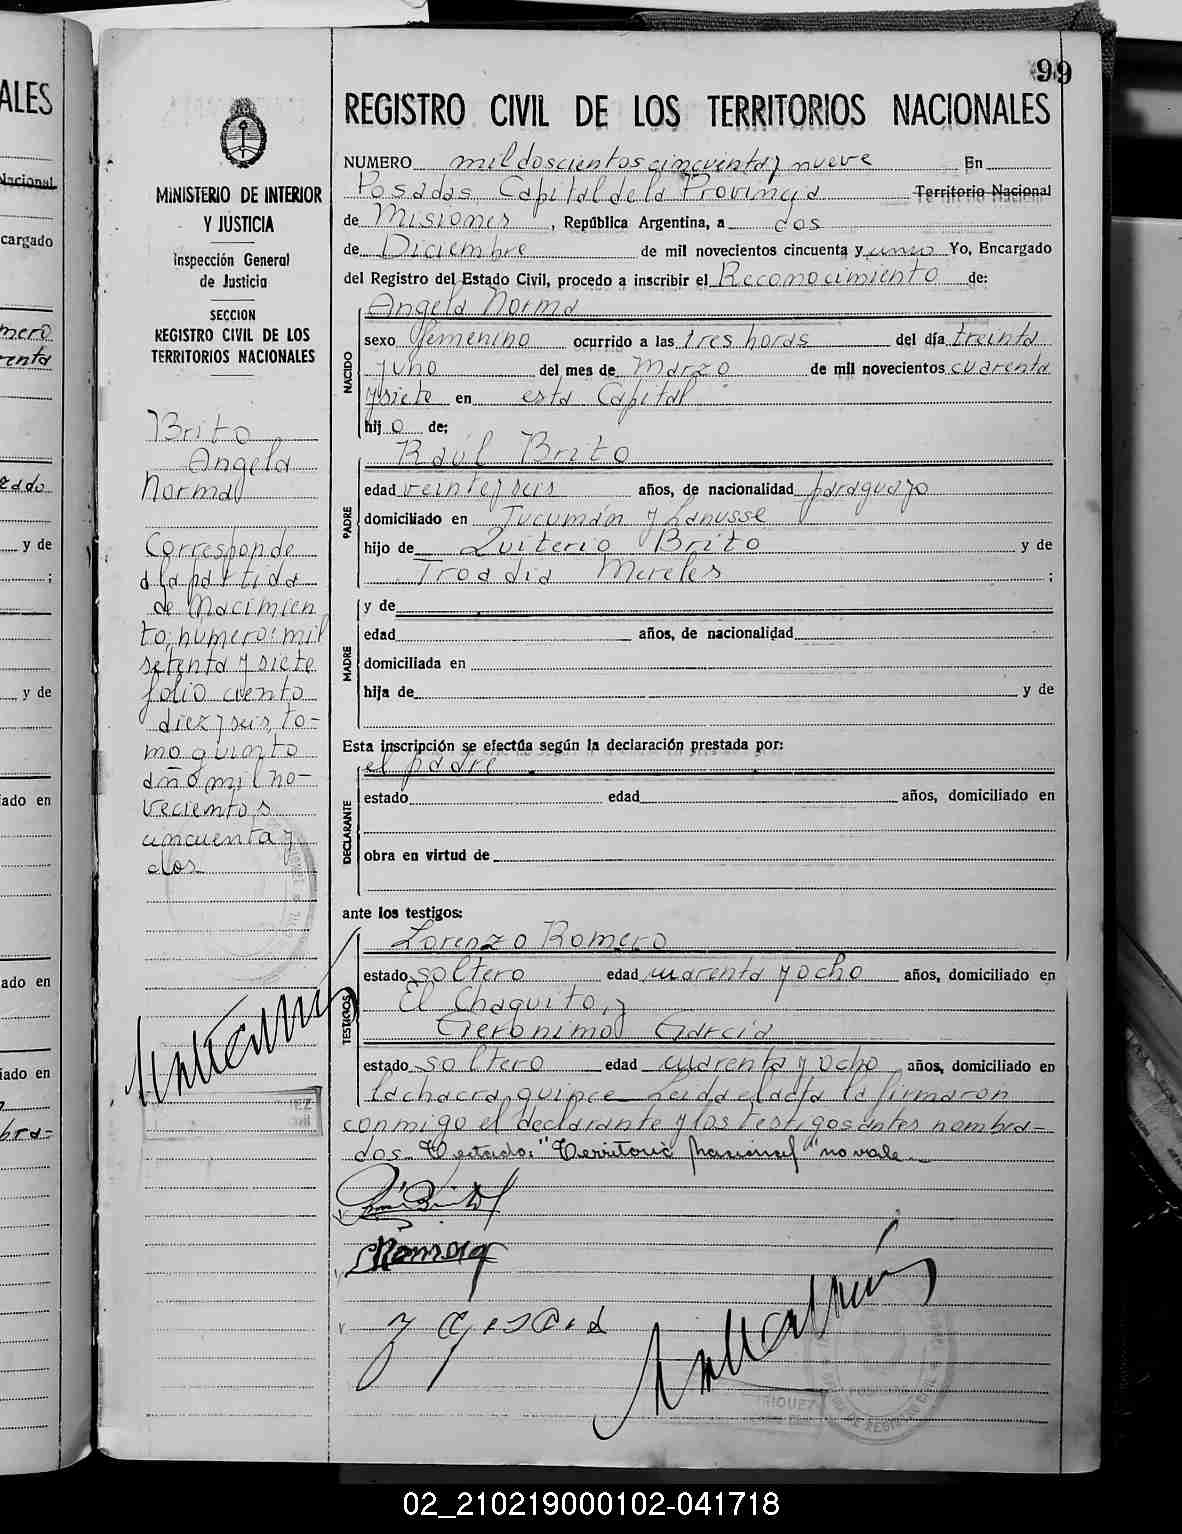 99
REGISTRO CIVIL DE LOS TERRITORIOS NACIONALES
MINISTERIO DE INTERIOR
Y JUSTICIA
Inspección General
de Justicia
SECCION
REGISTRO CIVIL DE LOS
TERRITORIOS NACIONALES
Brito
Angela
Norma
Corresponde
a la partida
de Nacimien
to, numero: mil
setenta y siete
folio ciento
diez y seis, to-
mo quinto
año mil no-
vecientos
cincuenta y
dos
NUMERO mil doscientos cincuenta y nueve En
Posadas, Capital de la Provincia Territorio Nacional
de Misiones, República Argentina, a dos
de Diciembre de mil novecientos cincuenta y uno Yo, Encargado
del Registro del Estado Civil, procedo a inscribir el Reconocimiento de:
NACIDO
Angela Norma
sexo femenino ocurrido a las tres horas del día treinta
y uno del mes de Marzo de mil novecientos cuarenta
y siete en esta Capital
hij o de:
PADRE
Raúl Brito
edad veinte y seis años, de nacionalidad paraguayo
domiciliado en Tucumán y Lanusse
hijo de Quiterio Brito y de
Troadia Mereles ;
MADRE
y de
edad años, de nacionalidad
domiciliada en
hija de y de
Esta inscripción se efectúa según la declaración prestada por:
DECLARANTE
el padre
estado edad años, domiciliado en
obra en virtud de
ante los testigos:
TESTIGOS
Lorenzo Romero
estado soltero edad cuarenta y ocho años, domiciliado en
El Chaquito, y
Gerónimo García
estado soltero edad cuarenta y ocho años, domiciliado en
la chacra quince Leida el acta la firmaron
conmigo el declarante y los testigos antes nombra-
dos. Testado: "Territorio Nacional" no vale
02_210219000102-041718